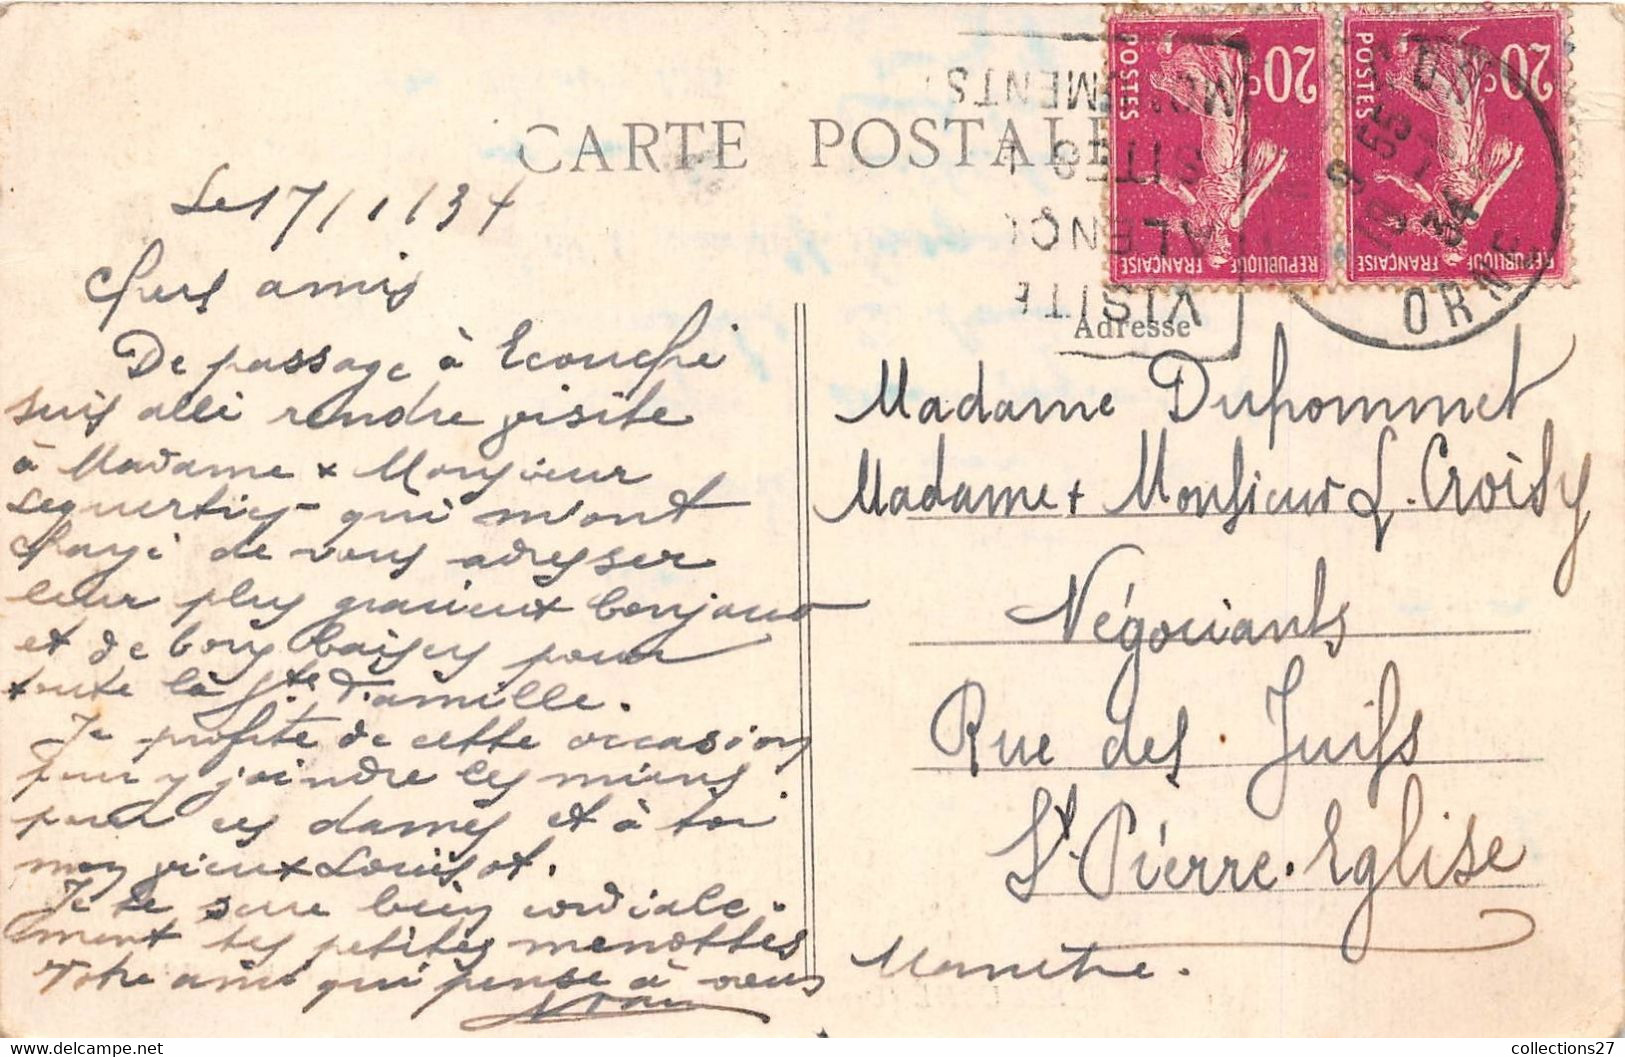 CARTE POSTALE
Le 17/1/34
Chers amis
De passage à Ecouché
suis allé rendre visite
à Madame & Monsieur
qui m'ont
chargé de vous adresser
leur plus gracieux bonjour
et de bons baisers pour
toute la Ste Famille.
Je profite de cette occasion
pour y joindre les miens
pour ces dames et à toi
mon vieux Louisot.
Je te serre bien cordiale-
ment tes petites menottes
Votre ami qui pense à vous
20c
POSTES
REPUBLIQUE FRANÇAISE
20c
POSTES
REPUBLIQUE FRANÇAISE
VISITE
ALENÇ
SITES
MO MENTS
19 9 55
34
ORNE
Adresse
Madame Dupommet
Madame & Monsieur L. Croisy
Négociants
Rue des Juifs
St. Pierre. Eglise
Manche.
collections27